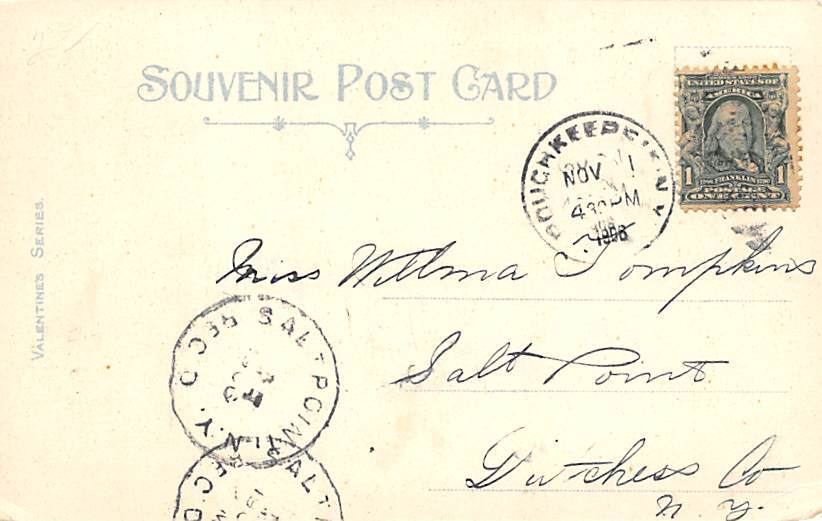 SOUVENIR POST CARD
UNITED STATES OF
AMERICA
1 FRANKLIN 1
POSTAGE
ONE CENT
POUGHKEEPSIE N.Y.
NOV 1
430PM
1906
VALENTINE'S SERIES.
Miss Wilma Tompkins
Salt Point
Dutchess Co
N. Y.
SALT POINT N.Y. REC'D
SALT REC'D